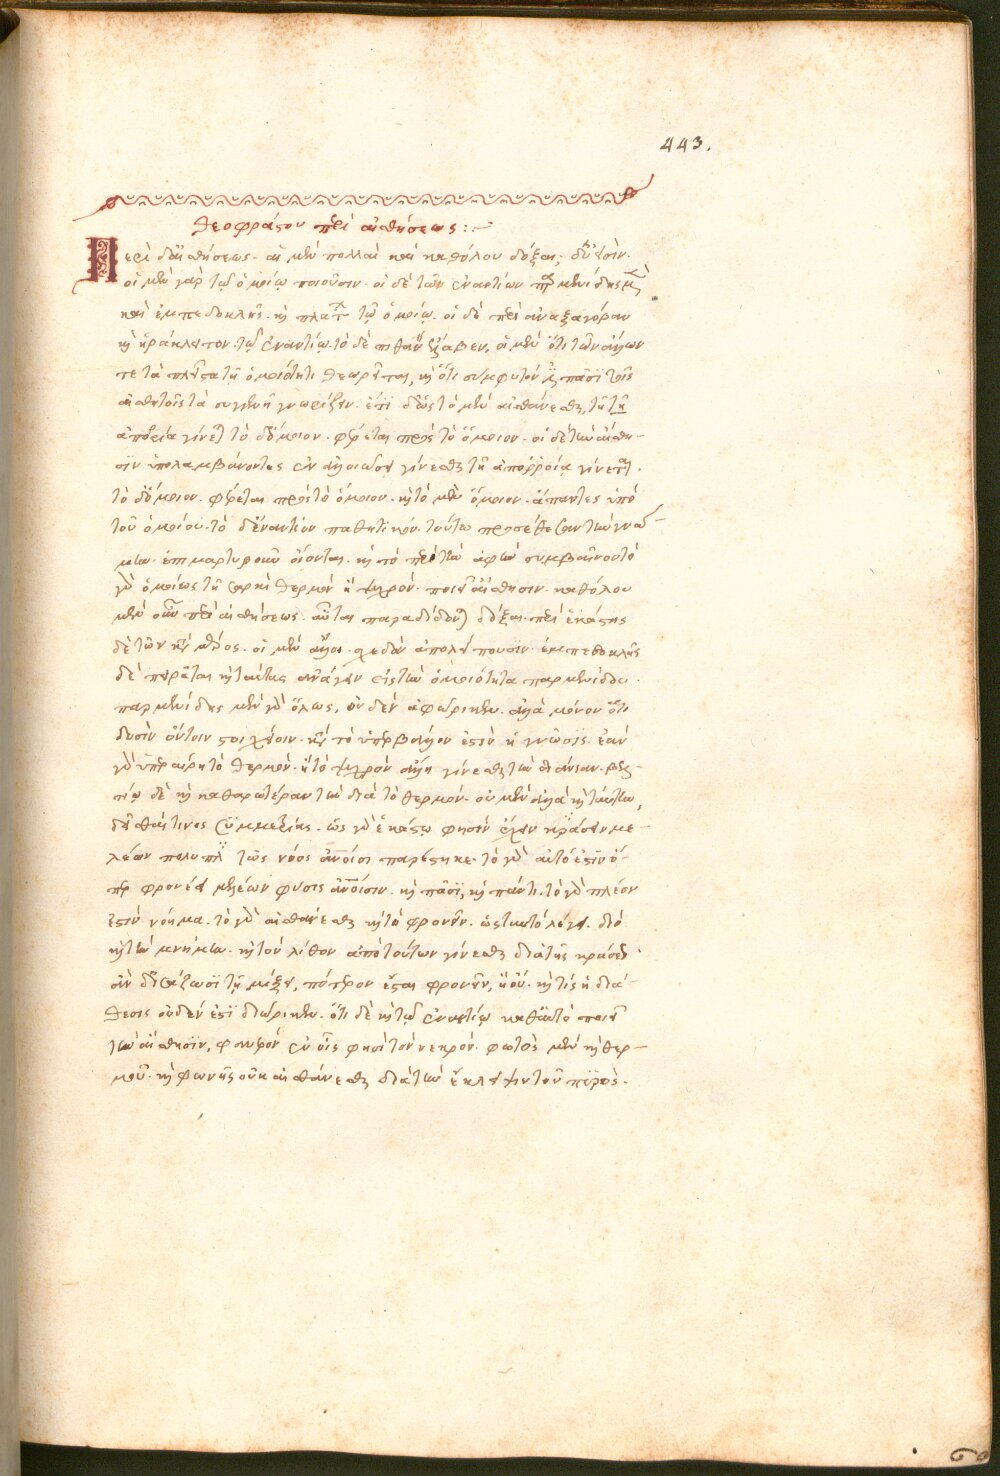 443.
θεοφράστου περὶ αἰσθήσεως :~
Περὶ δ' αἰσθήσεως. αἱ μὲν πολλαὶ καὶ καθόλου δόξαι, δύ' εἰσίν.
οἱ μὲν γὰρ τῷ ὁμοίῳ ποιοῦσιν. οἱ δὲ τῷ ἐναντίῳ παρμενίδης μὲν
καὶ ἐμπεδοκλῆς. καὶ πλάτων τῷ ὁμοίῳ. οἱ δὲ περὶ ἀναξαγόραν
καὶ ἡράκλειτον. τῷ ἐναντίῳ. τὸ δὲ πιθανὸν ἐξέλαβεν, οἱ μὲν ὅτι τῶν ἄλλων
τε τὰ πλεῖστα τῇ ὁμοιότητι θεωρεῖται, καὶ ὅτι σύμφυτόν πᾶσι τοῖς
αἰσθητοῖς τὰ συγγενῆ γνωρίζειν. ἔτι δ' ὡς τὸ μὲν αἰσθάνεσθαι, τῇ τῇ
ἀπορία γίνεται τὸ δ' ὅμοιον. φέρεται πρὸς τὸ ὅμοιον. οἱ δὲ τὴν αἴσθη-
σιν ὑπολαμβάνοντες ἐν ἀλλοιώσει γίνεσθαι τῇ ἀπορροία γίνεται.
τὸ δ' ὅμοιον. φέρεται πρὸς τὸ ὅμοιον. καὶ τὸ μὲν ὅμοιον. ἅπαντες ὑπὸ
τοῦ ὁμοίου. τὸ δ' ἐναντίον παθητικόν. τούτῳ προσέθεσαν τὴν γνώ-
μην. ἐπιμαρτυρεῖν οἴονται. καὶ τὸ περὶ τὴν ἁφὴν συμβαῖνον τὸ
γὰρ ὁμοίως τῇ σαρκὶ θερμὸν ἢ ψυχρόν. ποιεῖν αἴσθησιν. καθόλου
μὲν οὖν περὶ αἰσθήσεως. αὗται παραδέδονται δόξαι. περὶ ἑκάστης
δὲ τῶν κατὰ μέρος. οἱ μὲν ἄλλοι. σχεδὸν ἀπολείπουσιν. ἐμπεδοκλῆς
δὲ πειρᾶται καὶ ταύτας ἀνάγειν εἰς τὴν ὁμοιότητα παρμενίδου.
παρμενίδης μὲν γὰρ ὅλως, οὐδὲν ἀφώρικεν. ἀλλὰ μόνον ὅτι
δυσὶν ὄντοιν στοιχείοιν. κατὰ τὸ ὑπερβάλλον ἐστὶν ἡ γνῶσις. ἐὰν
γὰρ ὑπεραίρῃ τὸ θερμόν. ἢ τὸ ψυχρὸν ἄλλη γίνεσθαι τὴν διάνοιαν. βελ-
τίω δὲ καὶ καθαρωτέραν τὴν διὰ τὸ θερμόν. οὐ μὴν ἀλλὰ καὶ ταύτην,
δεῖσθαί τινος συμμετρίας. ὡς γὰρ ἑκάστῳ φησὶν ἔχειν κρᾶσιν με-
λέων πολυπλ τὼς νόος ἀνθρώποισι παρέστηκε. τὸ γὰρ αὐτό ἐστιν ὅ-
περ φρονέει μελέων φύσις ἀνθρώποισιν. καὶ πᾶσι, καὶ παντί. τὸ γὰρ πλέον
ἐστὶν νόημα. τὸ γὰρ αἰσθάνεσθαι καὶ τὸ φρονεῖν. ὡς ταὐτὸ λέγει. διὸ
καὶ τὴν μνήμην. καὶ τὸν λίθον ἀπὸ τούτων γίνεσθαι διὰ τῆς κράσε.
ἂν δ' ἰσάζωσι τῇ μίξει, πότερον ἔσται φρονεῖν, ἢ οὔ. καὶ τίς ἡ διά-
θεσις οὐδὲν ἔτι διώρικεν. ὅτι δὲ καὶ τῷ ἐναντίῳ καθ' αὑτὸ ποιεῖ
τὴν αἴσθησιν, φανερὸν ἐν οἷς φησὶ τὸν νεκρόν. φωτὸς μὲν καὶ θερ-
μοῦ. καὶ φωνῆς οὐκ αἰσθάνεσθαι διὰ τὴν ἔκλειψιν τοῦ πυρός.